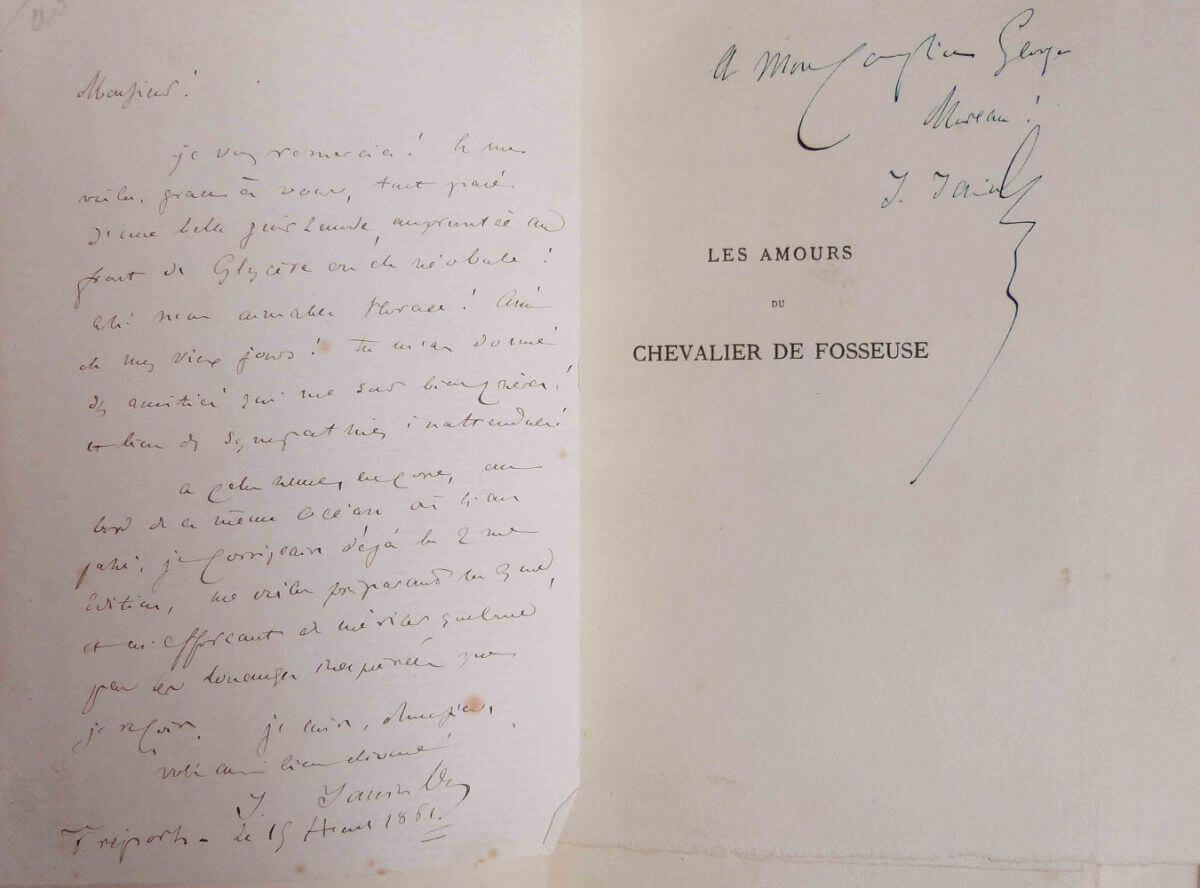 Monsieur!
je vous remercie! et me
voila, grace à vous, tout paré
d'une belle guirlande empruntée au
front de Glycère ou de néobule!
Ah! mon aimable Horace! Ami
de mes vieux jours! tu m'as donné
des amitiés qui me sont bien chères!
et bien des sympathies inattendues!
a cette heure, encore, au
bord de ce même océan où
je corrigeais déjà la 2me
Edition, me voila préparant la 3me,
et m'efforçant de mériter quelque
peu les louanges inespérées que
je reçois. je suis, Monsieur,
votre ami bien dévoué
J. Janin
Tréport - Le 15 1861.
A Mon George
Moreau!
J. Janin
LES AMOURS
DU
CHEVALIER DE FOSSEUSE